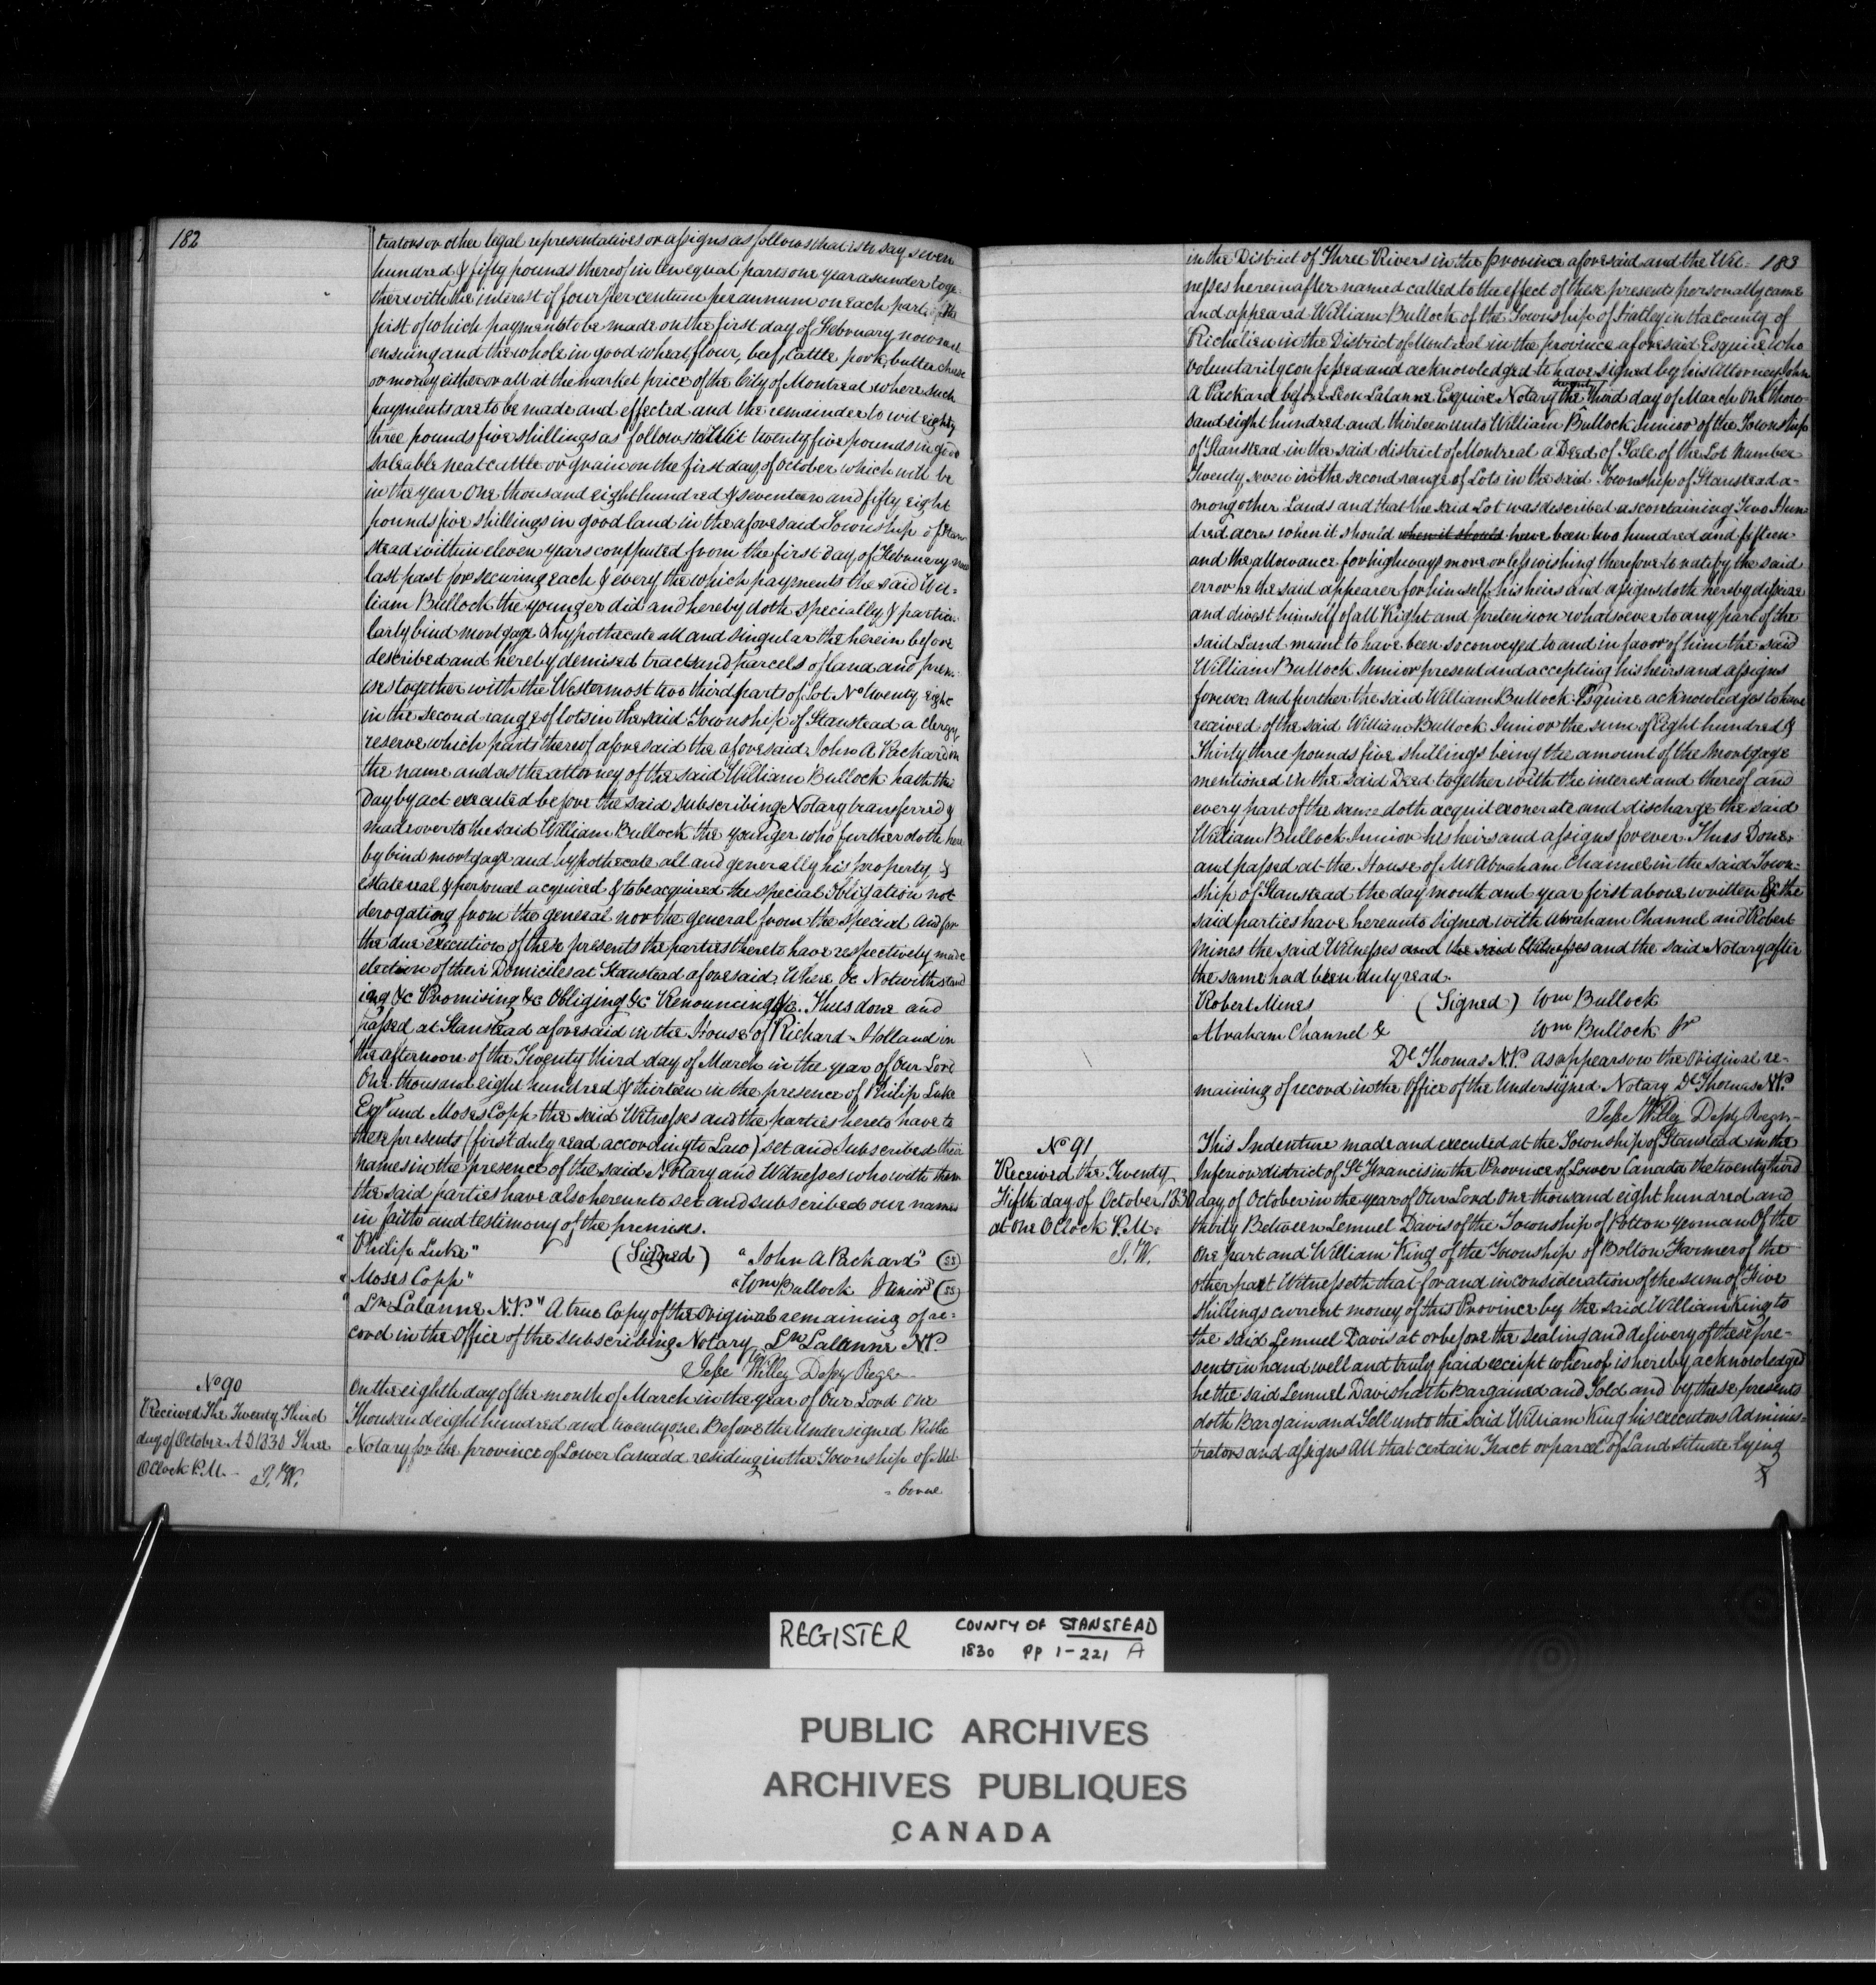 182
trators or other legal representatives or assigns as follows that is to say seven
hundred & fifty pounds thereof in ten equal parts one year asunder toge
ther with the interest of four per centum per annum on each part, of the
first of which payments to be made on the first day of February now next
ensuing and the whole in good wheat, flour, beef, Cattle pork, butter cheese
or money either or all at the market price of the City of Montreal where such
payments are to be made and effected and the remainder to wit eighty
three pounds five shillings as follows to Wit twenty five pounds in good
saleable neat cattle or grain on the first day of October which will be
in the year One thousand eight hundred & seventeen and fifty eight
pounds five shillings in good land in the aforesaid Township of Stan
stead within eleven years computed from the first day of February now
last past for securing each & every the which payments the said Wil=
liam Bullock the younger did and hereby doth specially & particu
larly bind mortgage & hypothecate all and singular the herein before
described and hereby demised tracts and parcels of land and prem
ises together with the Westermost two third parts of Lot No twenty eight
in the second range of lots in the said Township of Stanstead a Clergy
reserve which parts thereof aforesaid the aforesaid John A Packard in
the name and as the attorney of the said William Bullock hath this
Day by act executed before the said subscribing Notary transferred &
made over to the said William Bullock the younger who further doth here
by bind mortgage and hypothecate all and generally his property &
estate real & personal acquired & to be acquired the special obligation not
derogating from the general nor the general from the special And for
the due execution of these presents the parties thereto have respectively made
election of their Domiciles at Stanstead aforesaid. Where &c Notwithstand
ing &c Promising &c Obliging &c Renouncing &c. Thus done and
passed at Stanstead aforesaid in the House of Richard Holland in
the afternoon of the Twenty third day of March in the year of Our Lord
One thousand eight hundred & thirteen in the presence of Philip Luke
Esqr and Moses Copp the said Witnesses and the parties hereto have to
these presents (first duly read according to Law) set and Subscribed their
names in the presence of the said Notary and Witnesses who with them
the said parties have also hereunto set and subscribed our names
in faith and testimony of the premises.
"Philip Luke" (Signed) "John A Packard" (SS)
"Moses Copp" "Wm Bullock Junior" (SS)
"Ln Lalanne N.P." A true Copy of the Original remaining of re=
cord in the Office of the subscribing Notary Ln Lalanne NP.
Jesse Willey Depy Regr
No 90
Received The Twenty Third
day of October A D 1830 Three
OClock P.M. J. W.
On the eighth day of the month of March in the year of Our Lord one
Thousand eight hundred and twenty one Before the Undersigned Public
Notary for the province of Lower Canada residing in the Township of Mel
= borne
183
in the District of Three Rivers in the province aforesaid and the Wit-
nesses hereinafter named called to the effect of these presents personally came
and appeared William Bullock of the Township of Hatley in the County of
Richelieu in the District of Montreal in the province aforesaid Esquire, who
voluntarily confessed and acknowledged to have signed by his Attorney John
A Packard before Leon Lalanne Esquire Notary the twenty third day of March One thou-
sand eight hundred and thirteen unto William Bullock Junior of the Township
of Stanstead in the said district of Montreal a Deed of Sale of the Lot Number
Twenty seven in the second range of Lots in the said Township of Stanstead a-
mong other Lands and that the said Lot was described as containing Two Hun-
dred acres when it should when it should have been two hundred and fifteen
and the allowance for highways more or less wishing therefore to ratify the said
error he the said appearer for himself his heirs and assigns doth hereby disseize
and divest himself of all Right and pretension whatsoever to any part of the
said Land meant to have been so conveyed to and in favor of him the said
William Bullock Junior present and accepting his heirs and assigns
forever And further the said William Bullock Esquire acknowledges to have
received of the said William Bullock Junior the sum of Eight hundred &
Thirty three pounds five shillings being the amount of the mortgage
mentioned in the said Deed together with the interest and thereof and
every part of the same doth acquit exonerate and discharge the said
William Bullock Junior his heirs and assigns forever Thus Done
and passed at the House of Mr Abraham Channel in the said Town=
ship of Stanstead the day month and year first above written & the
said parties have hereunto signed with Abraham Channel and Robert
Mines the said Witnesses and the said Witnesses and the said Notary after
the same had been duly read.
Robert Mines (Signed) Wm Bullock
Abraham Channel & Wm Bullock Jr
Dl Thomas N.P. As appears on the Original re-
maining of record in the Office of the Undersigned Notary Dl Thomas NP.
Jesse Willey Depy Regr
No 91
Received the Twenty
Fifth day of October 1830
at One OClock P.M.
J. W.
This Indenture made and executed at the Township of Stanstead in the
Inferior district of St Francis in the Province of Lower Canada the twenty third
day of October in the year of Our Lord One thousand eight hundred and
thirty Between Lemuel Davis of the Township of Potton yeoman Of the
One part and William King of the Township of Bolton Farmer of the
other part Witnesseth that for and in consideration of the sum of Five
shillings current money of this Province by the said William King to
the said Lemuel Davis at or before the sealing and delivery of these pre-
sents in hand well and truly paid receipt whereof is hereby acknowledged
he the said Lemuel Davis hath Bargained and Sold and by these presents
doth Bargain and Sell unto the said William King his executors Adminis=
trators and assigns All that certain Tract or parcel of Land situate lying
&
REGISTER COUNTY OF STANSTEAD
1830 PP 1-221 A
PUBLIC ARCHIVES
ARCHIVES PUBLIQUES
CANADA